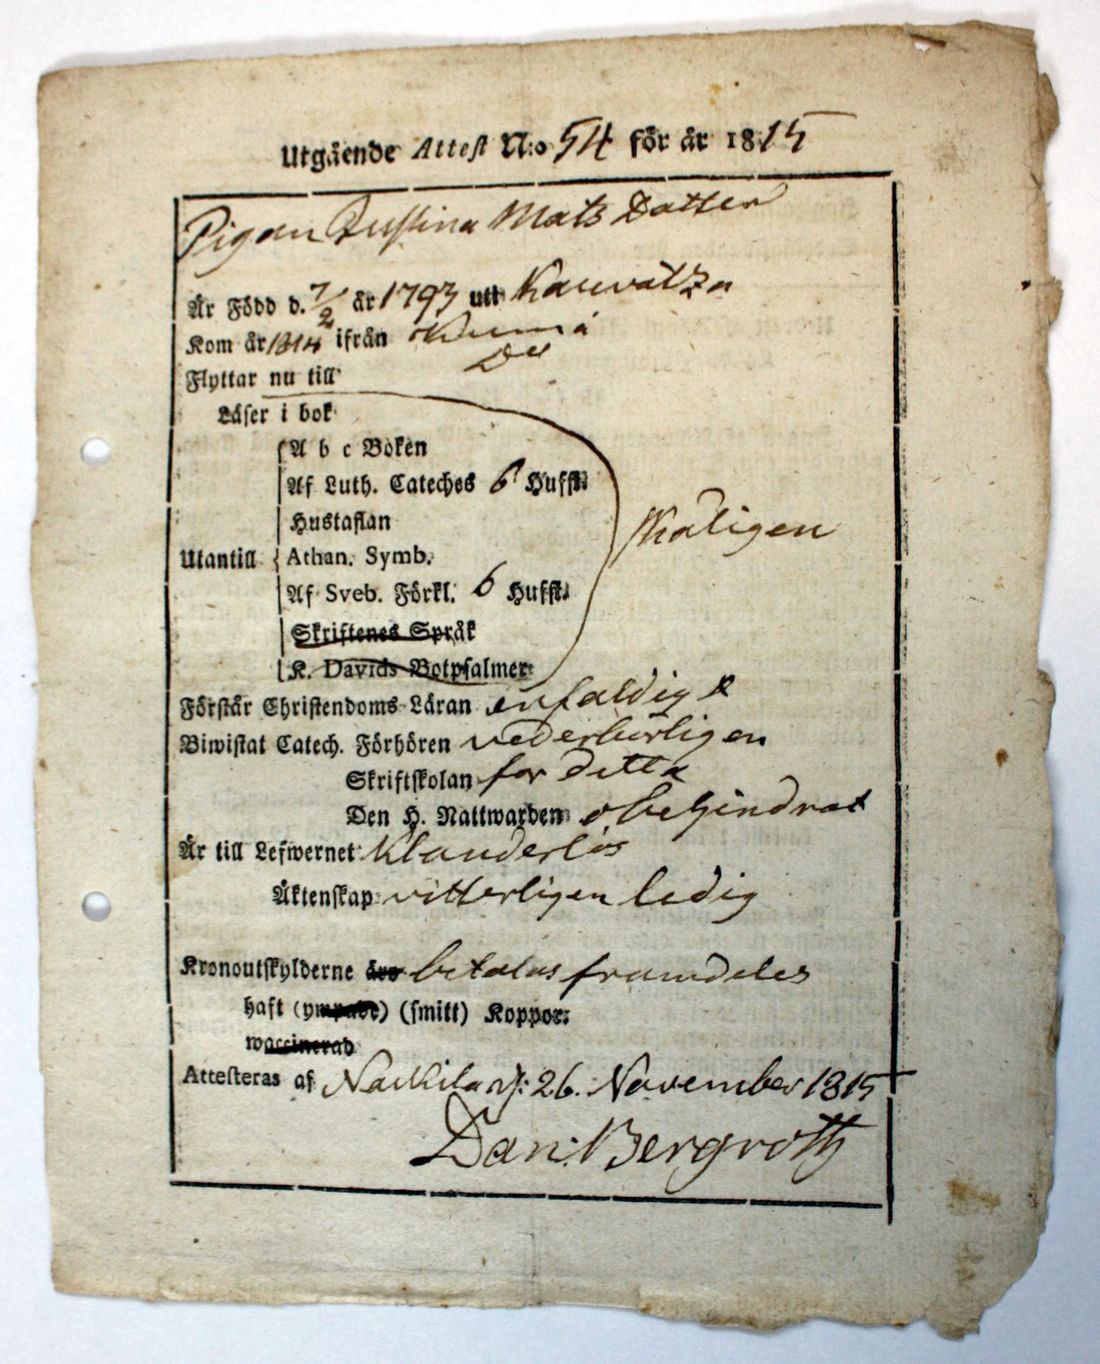 Utgående Attest N:o 54 för år 1815
Pigan Justina Mats Datter
Är Född d. 7/2 år 1793 uti Kauvatza
Kom år 1814 ifrån Kumå
Flyttar nu till Do
Läser i bok
A b c Boken
Af Luth. Cateches 6 Hufst.
Hustaflan
skäligen
Utantill Athan. Symb.
Af Sveb. Förkl. 6 Hufst.
Skriftenes Språk
K. Davids Botpsalmer
Förstår Christendoms Läran enfaldigt
Biwistat Catech. Förhören vederbörligen
Skriftskolan för detta
Den H. Nattwarden obehindrat
Är till Lefwernet Klanderlös
Äktenskap vitterligen ledig
Kronoutskylderne äro betalas framdeles
haft (ympade) (smitt) Koppor.
waccinerad
Attesteras af Nackila d: 26. November 1815
Dan: Bergroth